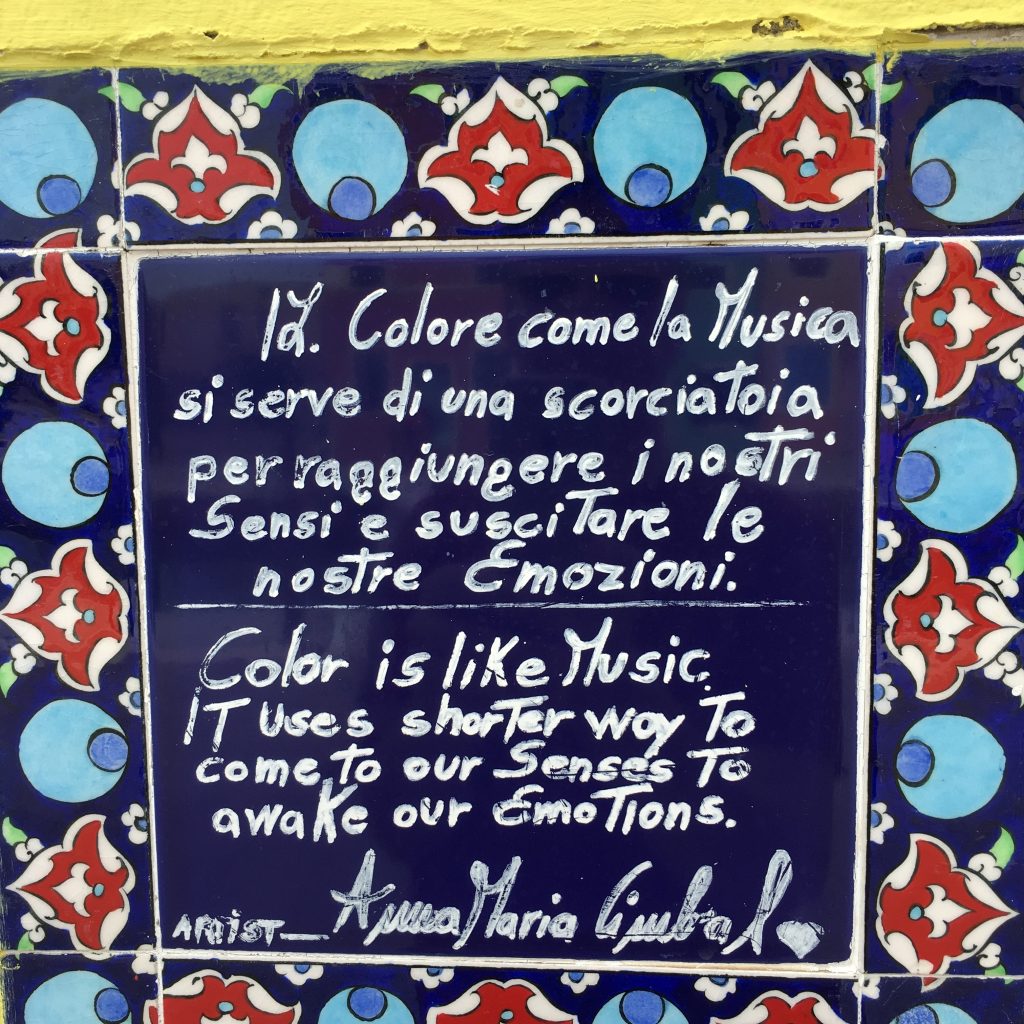 Colore come la Musica
si serve di una scorciatoia
per raggiungere i nostri
Sensi e suscitare le
nostre Emozioni.
Color is like Music.
IT uses shorter way to
come to our Senses to
awake our Emotions.
ARTIST_ Anna Maria